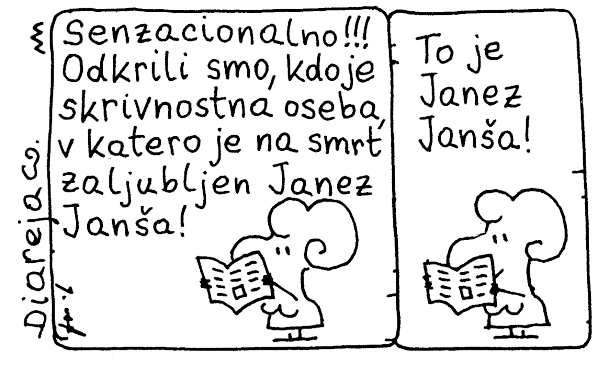 Senzacionalno!!!
Odkrili smo, kdo je
skrivnostna oseba,
v katero je na smrt
zaljubljen Janez
Janša!
To je
Janez
Janša!
Diareja co.